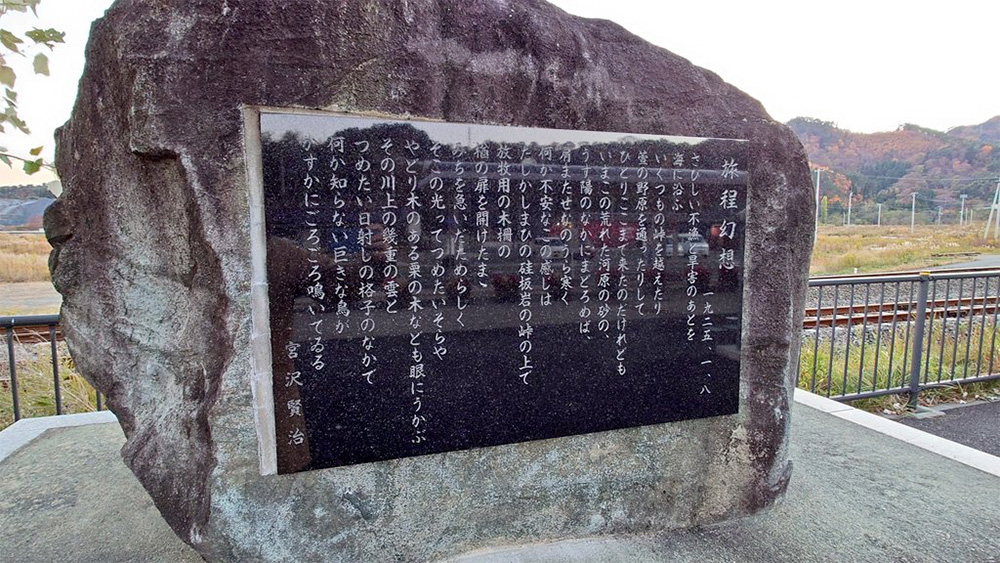 旅程幻想
一九二五、一、八
さびしい不漁と旱害のあとを
海に沿ふ
いくつもの峠を越えたり
萱の野原を通ったりして
ひとりここまで来たのだけれども
いまこの荒れた河原の砂の、
うす陽のなかにまどろめば、
肩またせなのうら寒く
何か不安なこの感じは
たしかしまひの硅板岩の峠の上で
放牧用の木柵の
楢の扉を開けたまゝ
みちを急いだためらしく
そこの光ってつめたいそらや
やどり木のある栗の木なども眼にうかぶ
その川上の幾重の雲と
つめたい日射しの格子のなかで
何か知らない巨きな鳥が
かすかにごろごろ鳴いてゐる
宮沢賢治